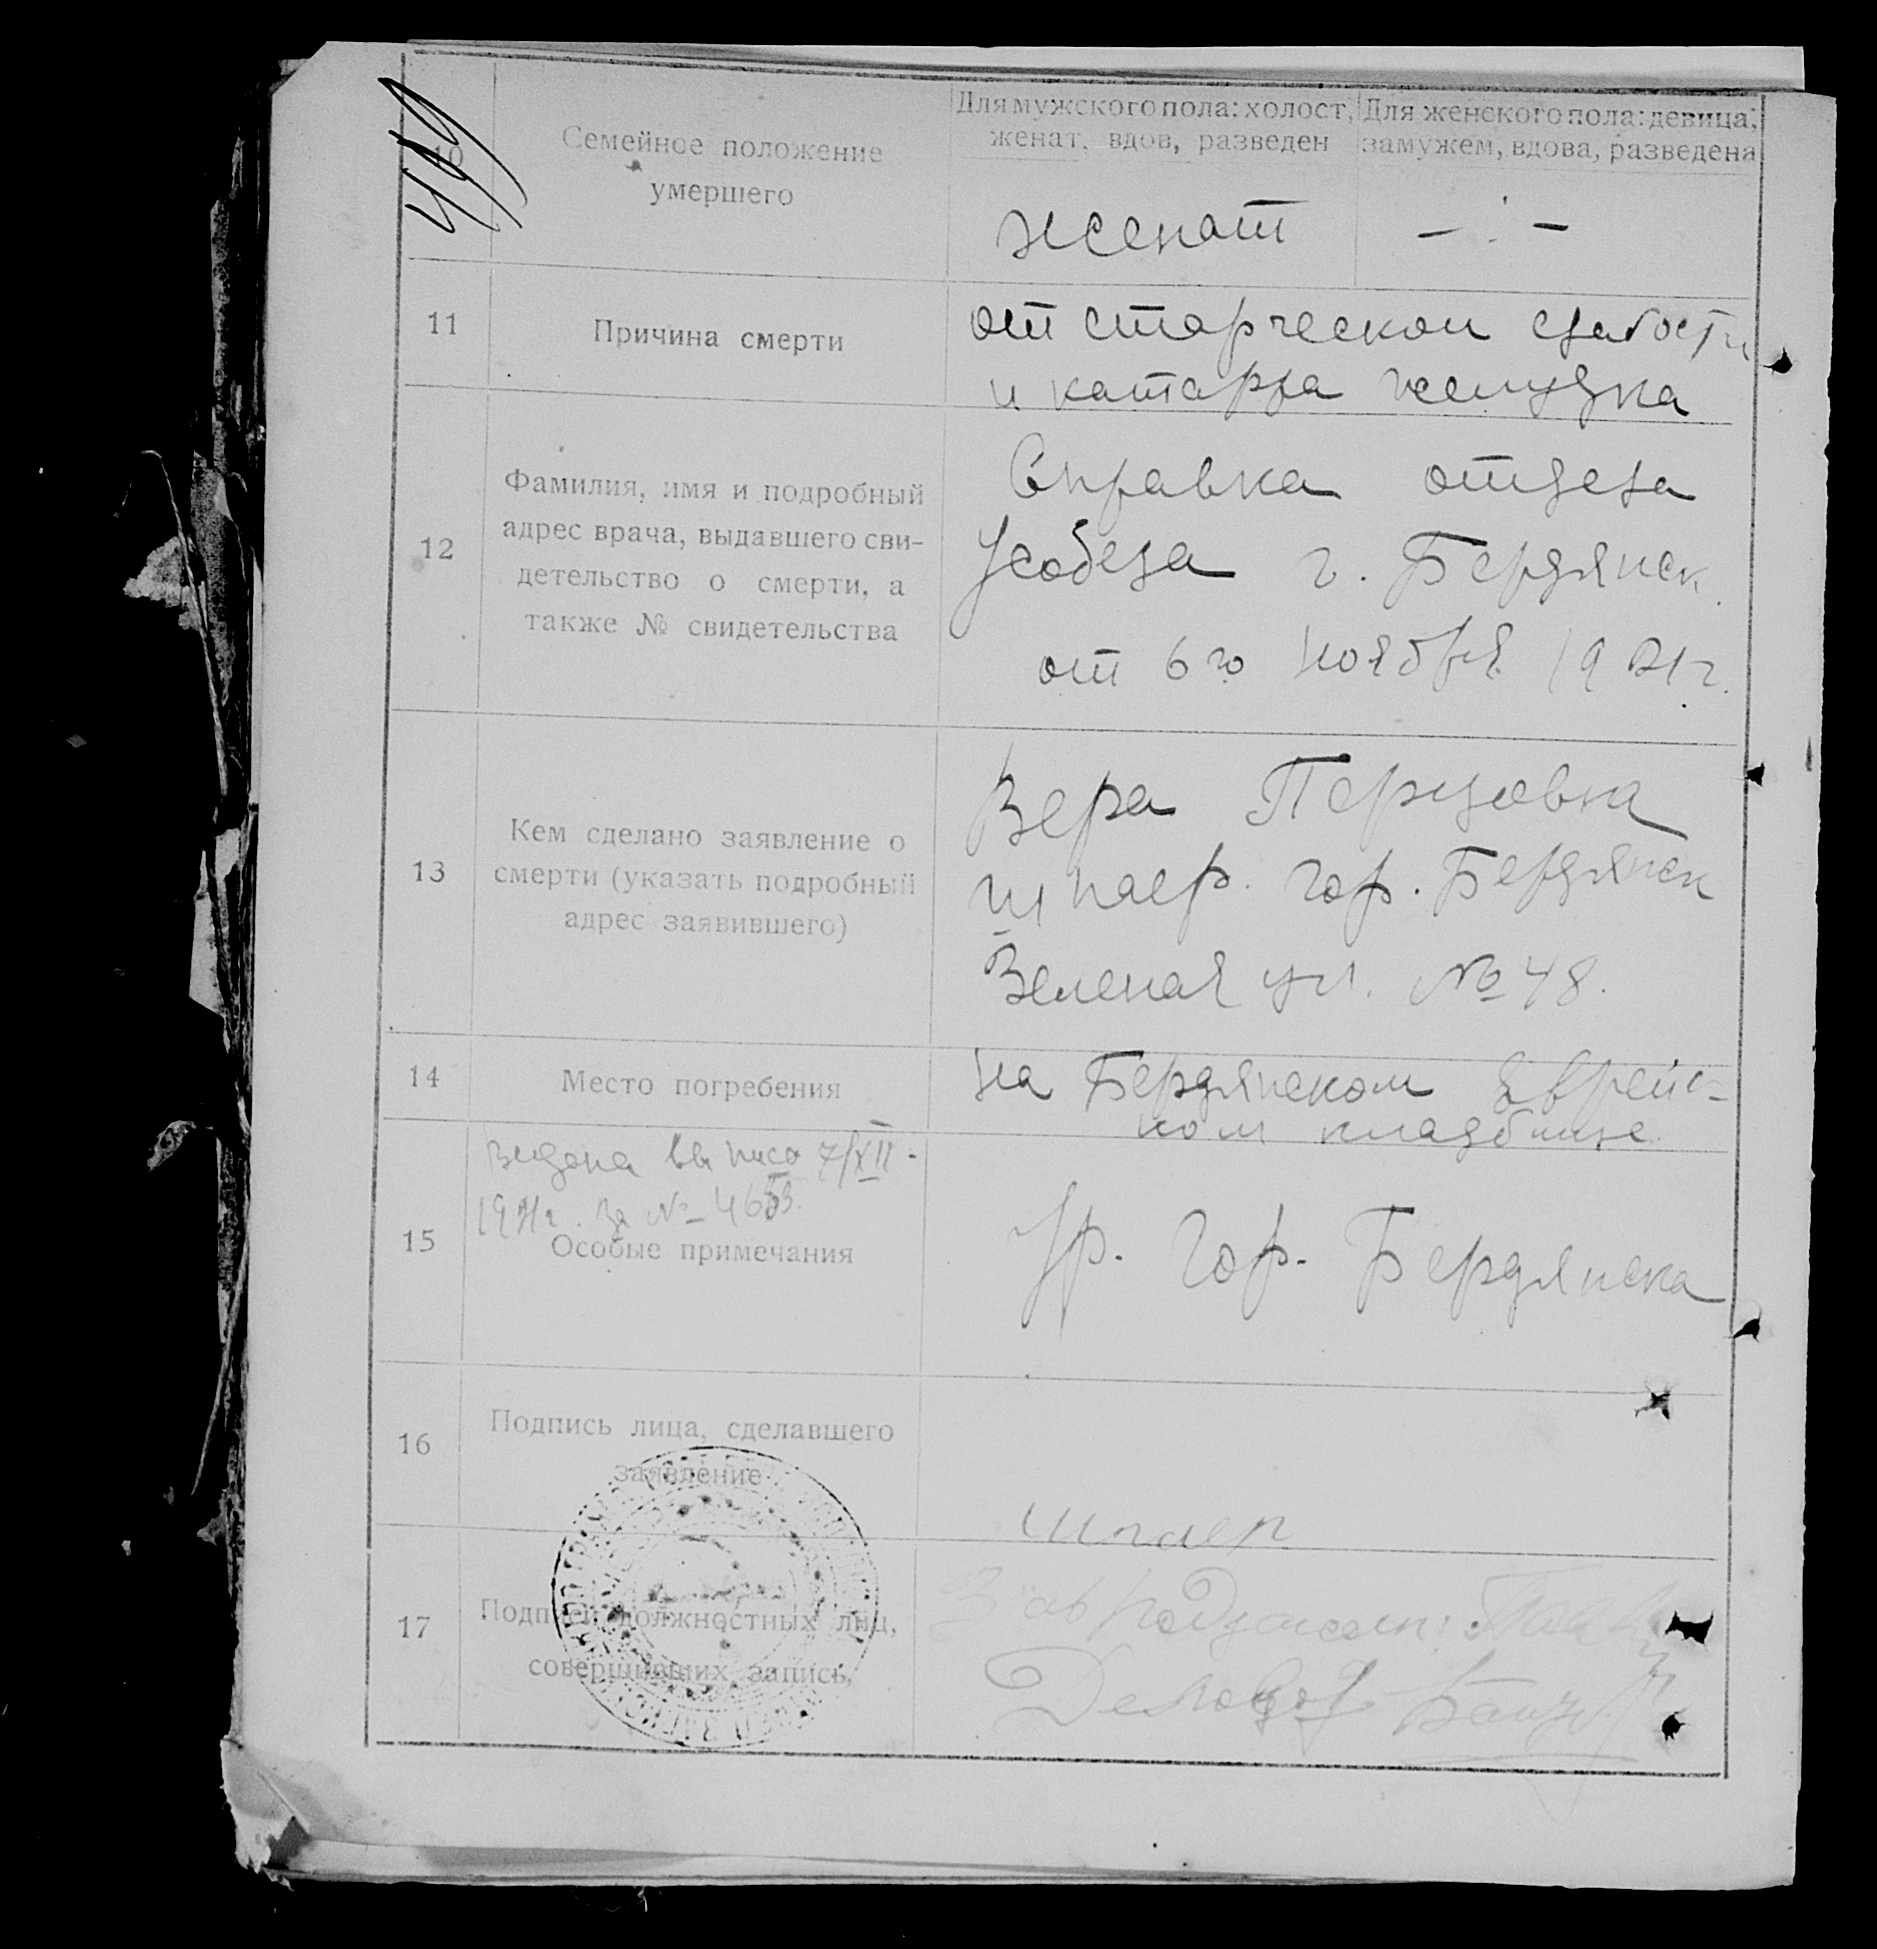 449
Для мужского пола: холост, женат, вдов, разведен
Для женского пола: девица, замужем, вдова, разведена
10
Семейное положение
умершего
женат
— : —
11
Причина смерти
от старческой слабости
и катарра желудка
12
Фамилия, имя и подробный
адрес врача, выдавшего сви-
детельство о смерти, а
также № свидетельства
Справка отдела
Усобеза г. Бердянск
от 6 го ноября 1921 г.
13
Кем сделано заявление о
смерти (указать подробный
адрес заявившего)
Вера
гор. Бердянск
Зеленая ул. № 48.
14
Место погребения
на Бердянском Еврейс-
ком кладбище
15
видана виписа 7/XII -
192
за № 
Особые примечания
Ур. гор. Бердянска
16
Подпись лица, сделавшего
заявление
17
Подписи должностных лиц,
совершивших запись,
Зав
Делов